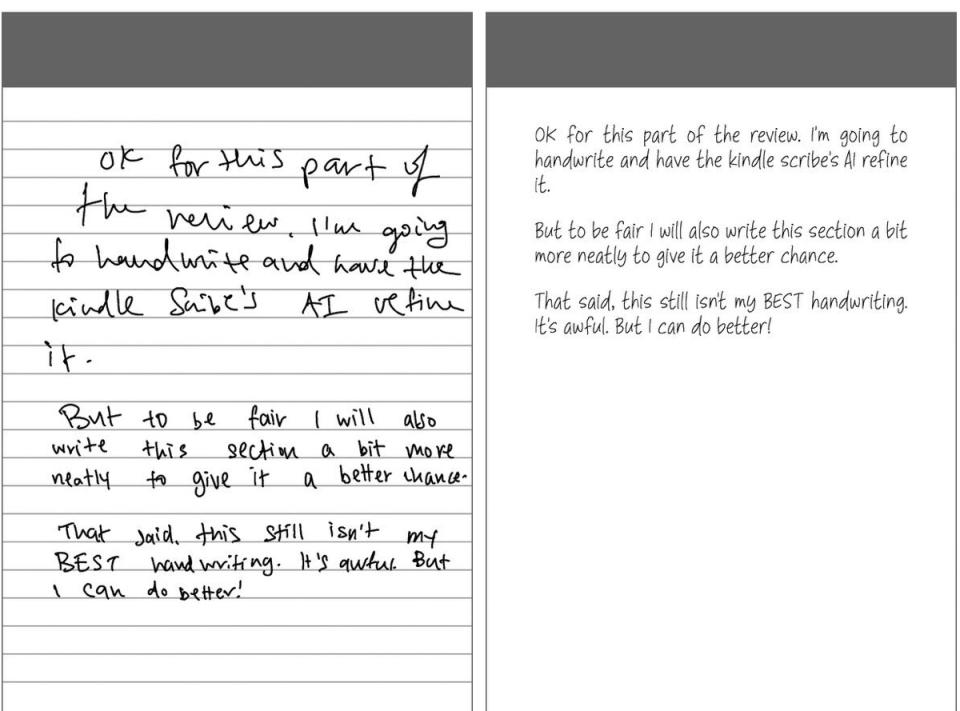 OK for this part of
the review. I'm going
to handwrite and have the
kindle Scibe's AI refine
it.
But to be fair I will also
write this section a bit more
neatly to give it a better chance.
That said, this still isn't my
BEST handwriting. It's awful. But
I can do better!
OK for this part of the review. I'm going to
handwrite and have the kindle scribe's AI refine
it.
But to be fair I will also write this section a bit
more neatly to give it a better chance.
That said, this still isn't my BEST handwriting.
It's awful. But I can do better!